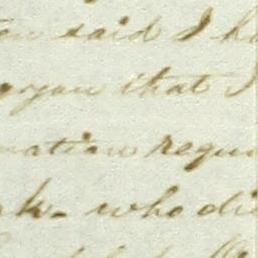 said I ha
you that I
mation requi
k- who di